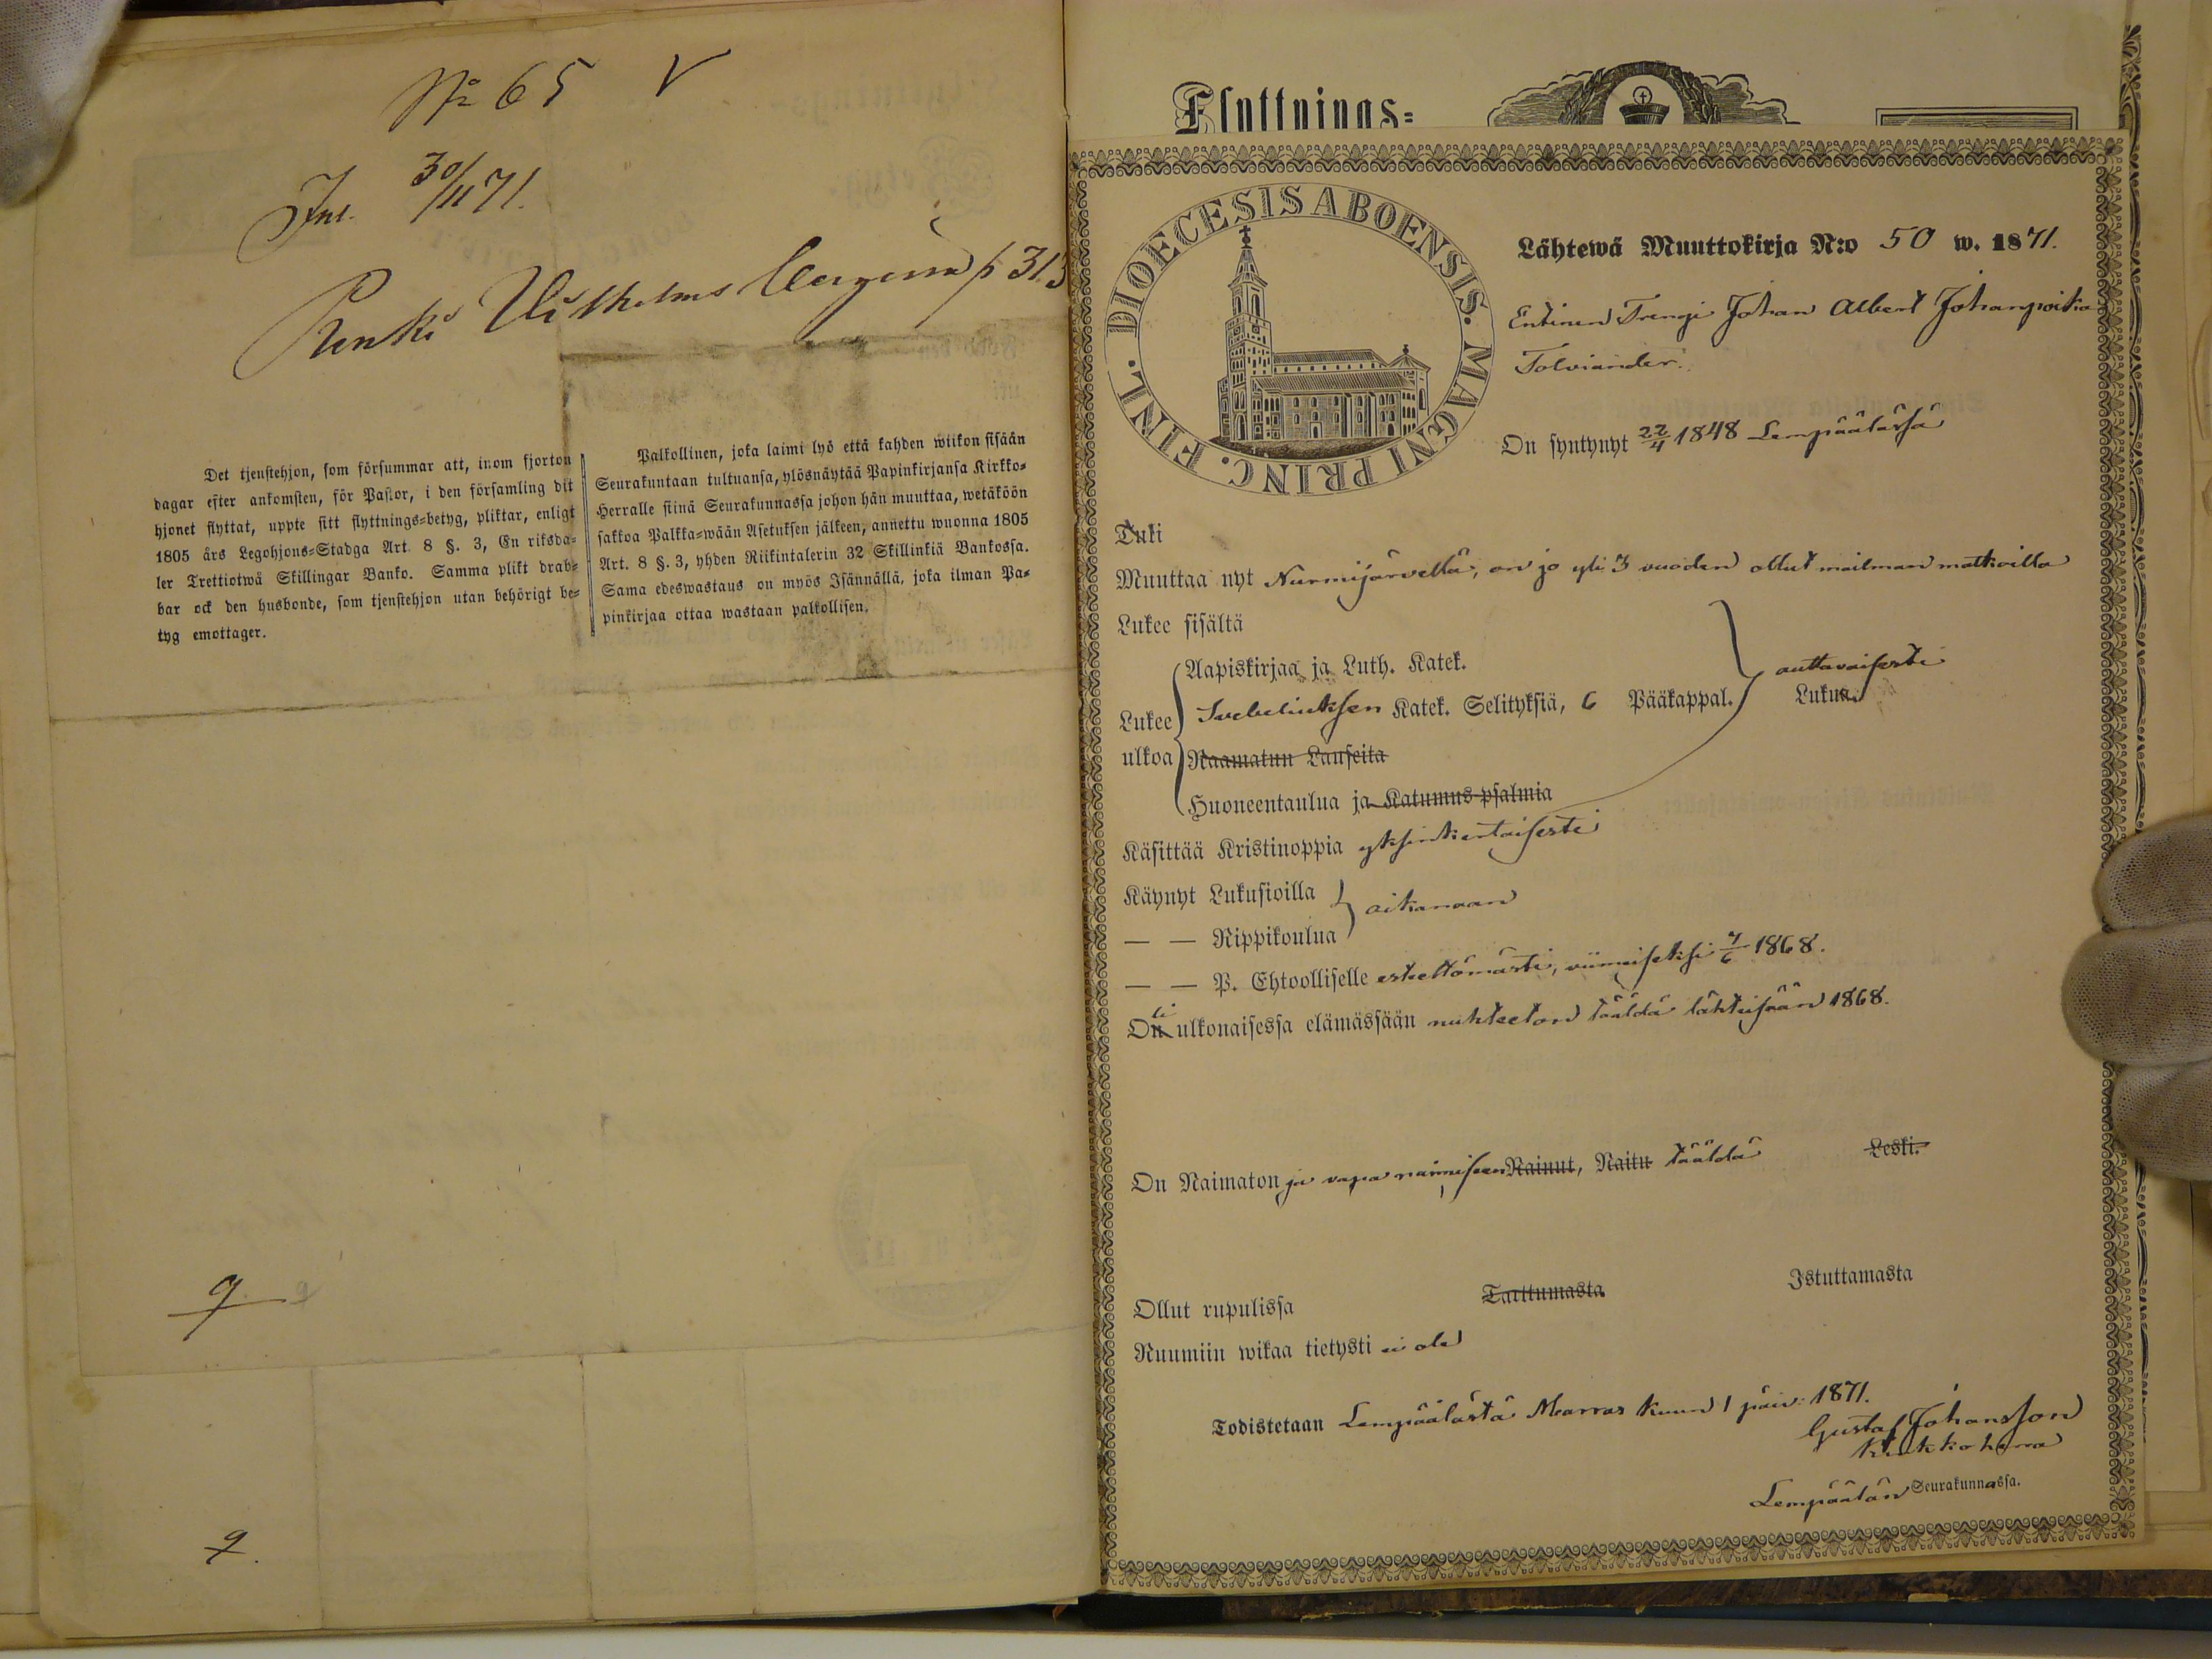 No 65 V
Inl. 30/11 71.
Renki Wilhelms p 313
Det tjenstehjon, som försummar att, inom fjorton
dagar efter ankomsten, för Pastor, i den församling dit
hjonet flyttat, uppte sitt flyttnings=betyg, pliktar, enligt
1805 års Legohjons=Stadga Art. 8 §. 3, En riksda=
ler Trettiotwå Skillingar Banko. Samma plikt drab=
bar ock den husbonde, som tjenstehjon utan behörigt be=
tyg emottager.
Palkollinen, joka laimi lyö että kahden wiikon sisään
Seurakuntaan tultuansa, ylösnäytää Papinkirjansa Kirkko=
Herralle siinä Seurakunnassa johon hän muuttaa, wetäköön
sakkoa Palkka=wään Asetuksen jälkeen, annettu wuonna 1805
Art. 8 §. 3, yhden Riikintalerin 32 Skillinkiä Bankossa.
Sama edeswastaus on myös Isännällä, joka ilman Pa=
pinkirjaa ottaa wastaan palkollisen.
9
9.
Flyttnings=
DIOECESIS ABOENSIS. MAGNI PRINC. FINL.
Lähtewä Muuttokirja N:o 50 w. 1871.
Entinen Trengi Johan Albert Johanpoika
Tolviander.
On syntynyt 22/4 1848 Lempäälässä
Tuki
Muuttaa nyt Nurmijärvellä, on jo yli 3 vuoden ollut mailman matkoilla
Lukee sisältä
Aapiskirjaa ja Luth. Katek.
Lukee ulkoa
Svebeliuksen Katek. Selityksiä, 6 Pääkappal.
auttavaisesti
Lukua
Raamatun Lauseita
Huoneentaulua ja Katumus-psalmia
Käsittää Kristinoppia yksinkertaisesti
Käynyt Lukusioilla
aikanaan
— — Rippikoulua
— — P. Ehtoolliselle esteettömästi, viimeiseksi 7/6 1868.
Oli ulkonaisessa elämässään nuhteeton täältä lähteisään 1868.
On Naimaton ja vapa naimiseen Nainut, Naitu täältä Leski.
Ollut rupulissa Tarttumasta Istuttamasta
Ruumiin wikaa tietysti ei ole
Todistetaan Lempäälästä Marras kuun 1 päiv: 1871.
Gustaf Johansson
Kirkkoherra
Lempäälän Seurakunnassa.